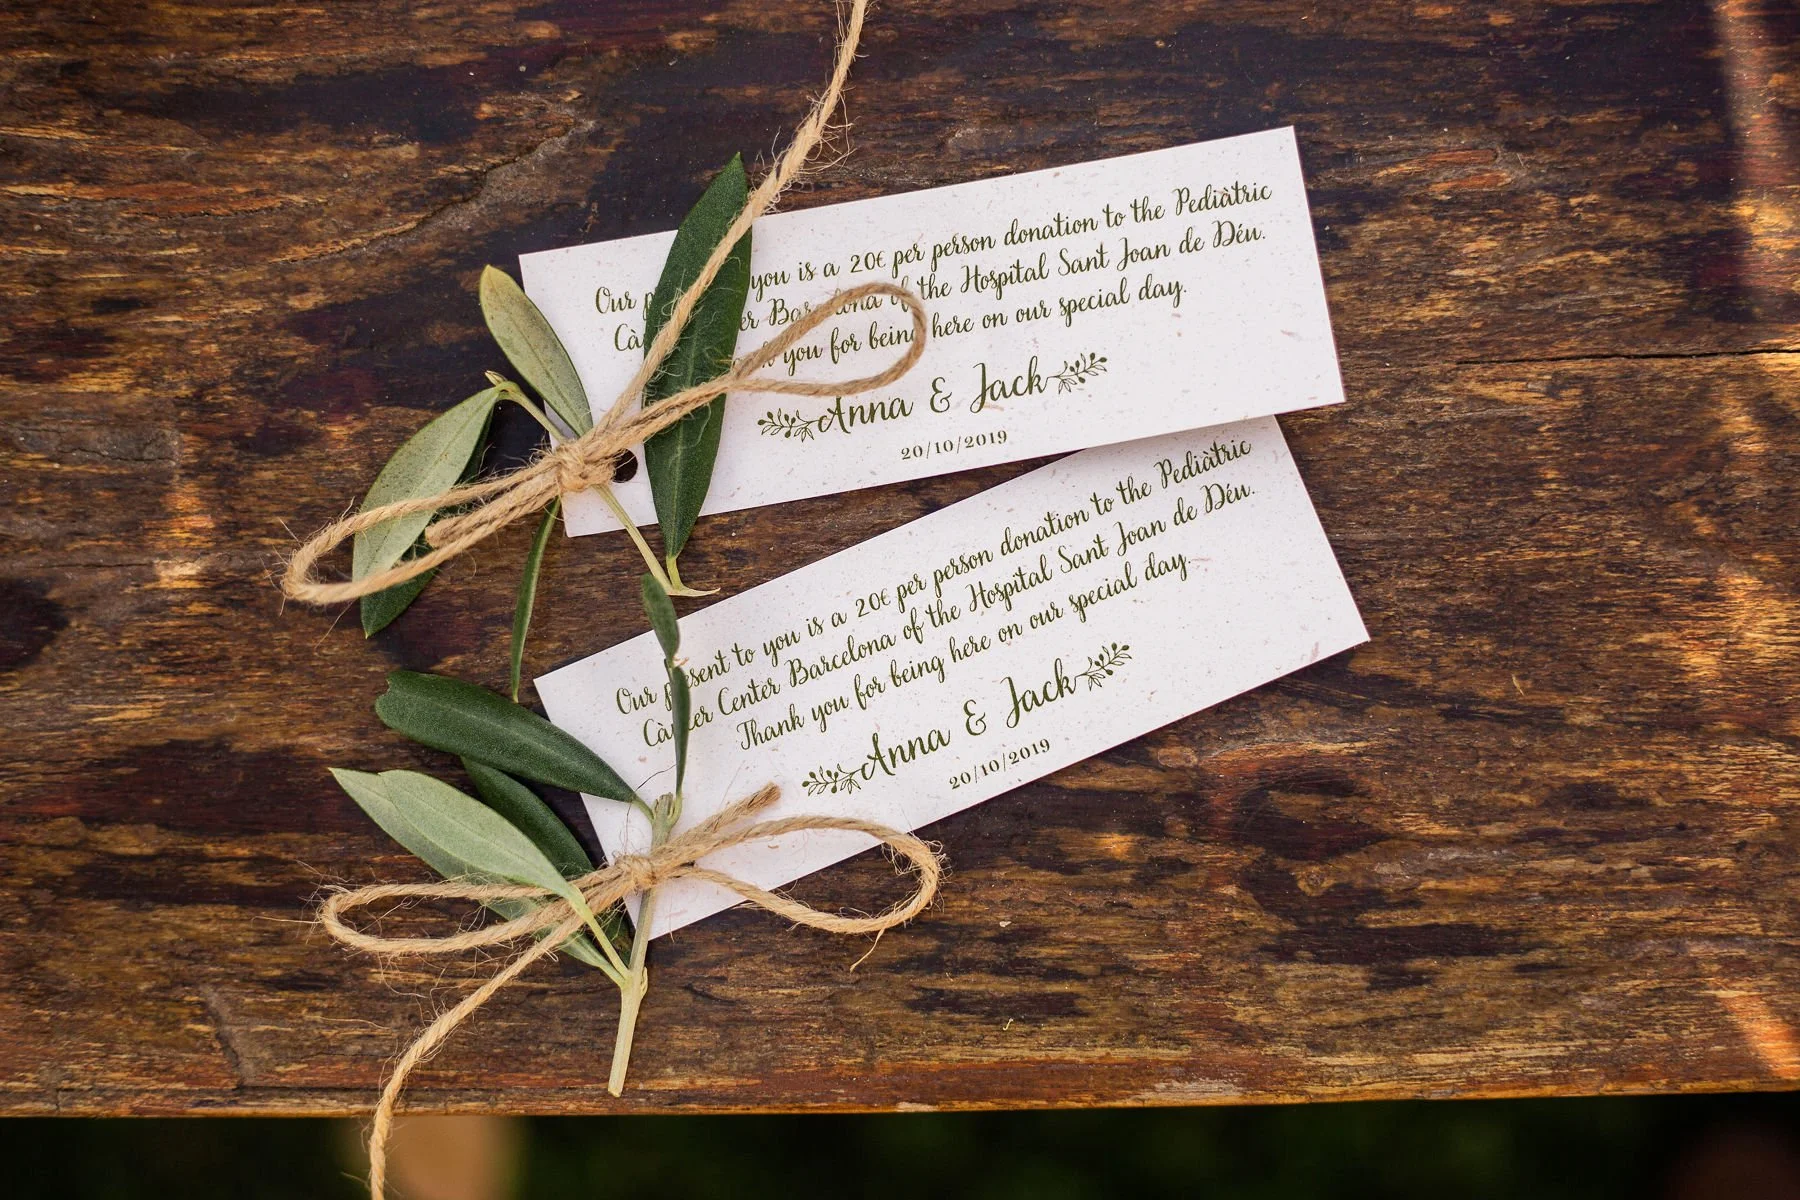 Our you is a 20€ per person donation to the Pediàtric
Barcelona of the Hospital Sant Joan de Déu.
you for being here on our special day.
Anna & Jack
20/10/2019
Our present to you is a 20€ per person donation to the Pediàtric
Càncer Center Barcelona of the Hospital Sant Joan de Déu.
Thank you for being here on our special day.
Anna & Jack
20/10/2019